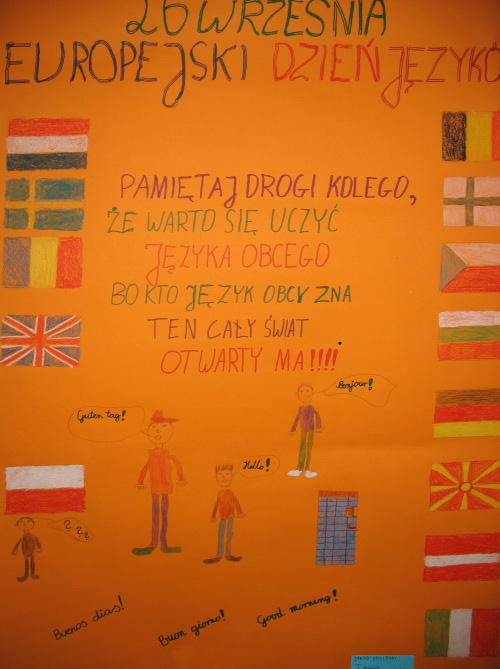 26 WRZEŚNIA
EUROPEJSKI DZIEŃ JĘZYKÓ
PAMIĘTAJ DROGI KOLEGO,
ŻE WARTO SIĘ UCZYĆ
JĘZYKA OBCEGO
BO KTO JĘZYK OBCY ZNA
TEN CAŁY ŚWIAT
OTWARTY MA!!!!
Bonjour!
Guten tag!
Hello!
? ? ?
Buenos dias!
Buon giorno!
Good morning!